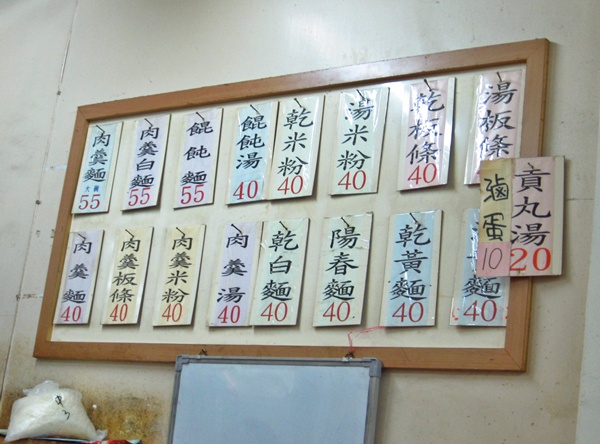 肉羹麵 大碗 55
肉羹白麵 55
餛飩麵 55
餛飩湯 40
乾米粉 40
湯米粉 40
乾板條 40
湯板條
肉羹麵 40
肉羹板條 40
肉羹米粉 40
肉羹湯 40
乾白麵 40
陽春麵 40
乾黃麵 40
麵 40
滷蛋 10
貢丸湯 20